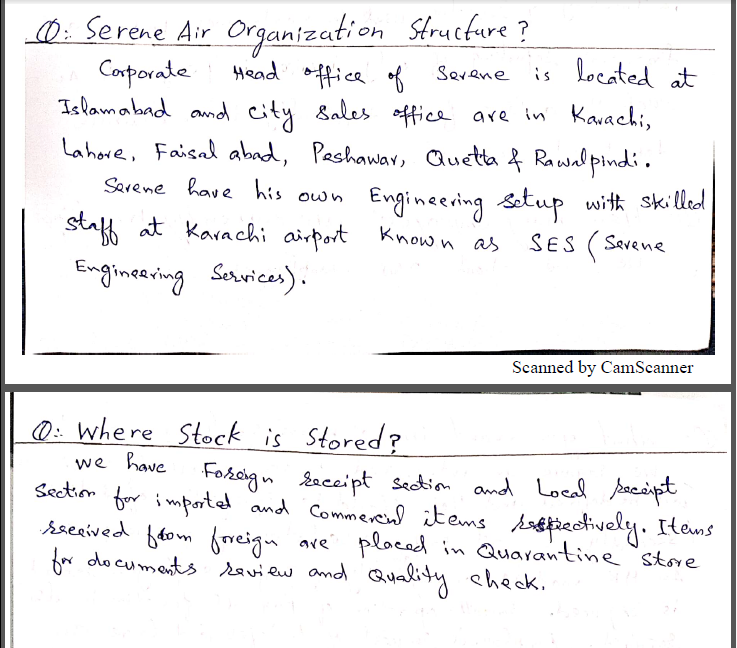 Q:- Serene Air Organization Structure?
Corporate Head office of Serene is located at
Islamabad and city Sales office are in Karachi,
Lahore, Faisal abad, Peshawar, Quetta & Rawalpindi.
Serene have his own Engineering setup with skilled
staff at Karachi airport known as SES (Serene
Engineering Services).
Scanned by CamScanner
Q:- Where Stock is Stored?
we have Foreign receipt section and Local receipt
Section for imported and Commercial items respectively. Items
received from foreign are placed in Quarantine store
for documents review and Quality check.